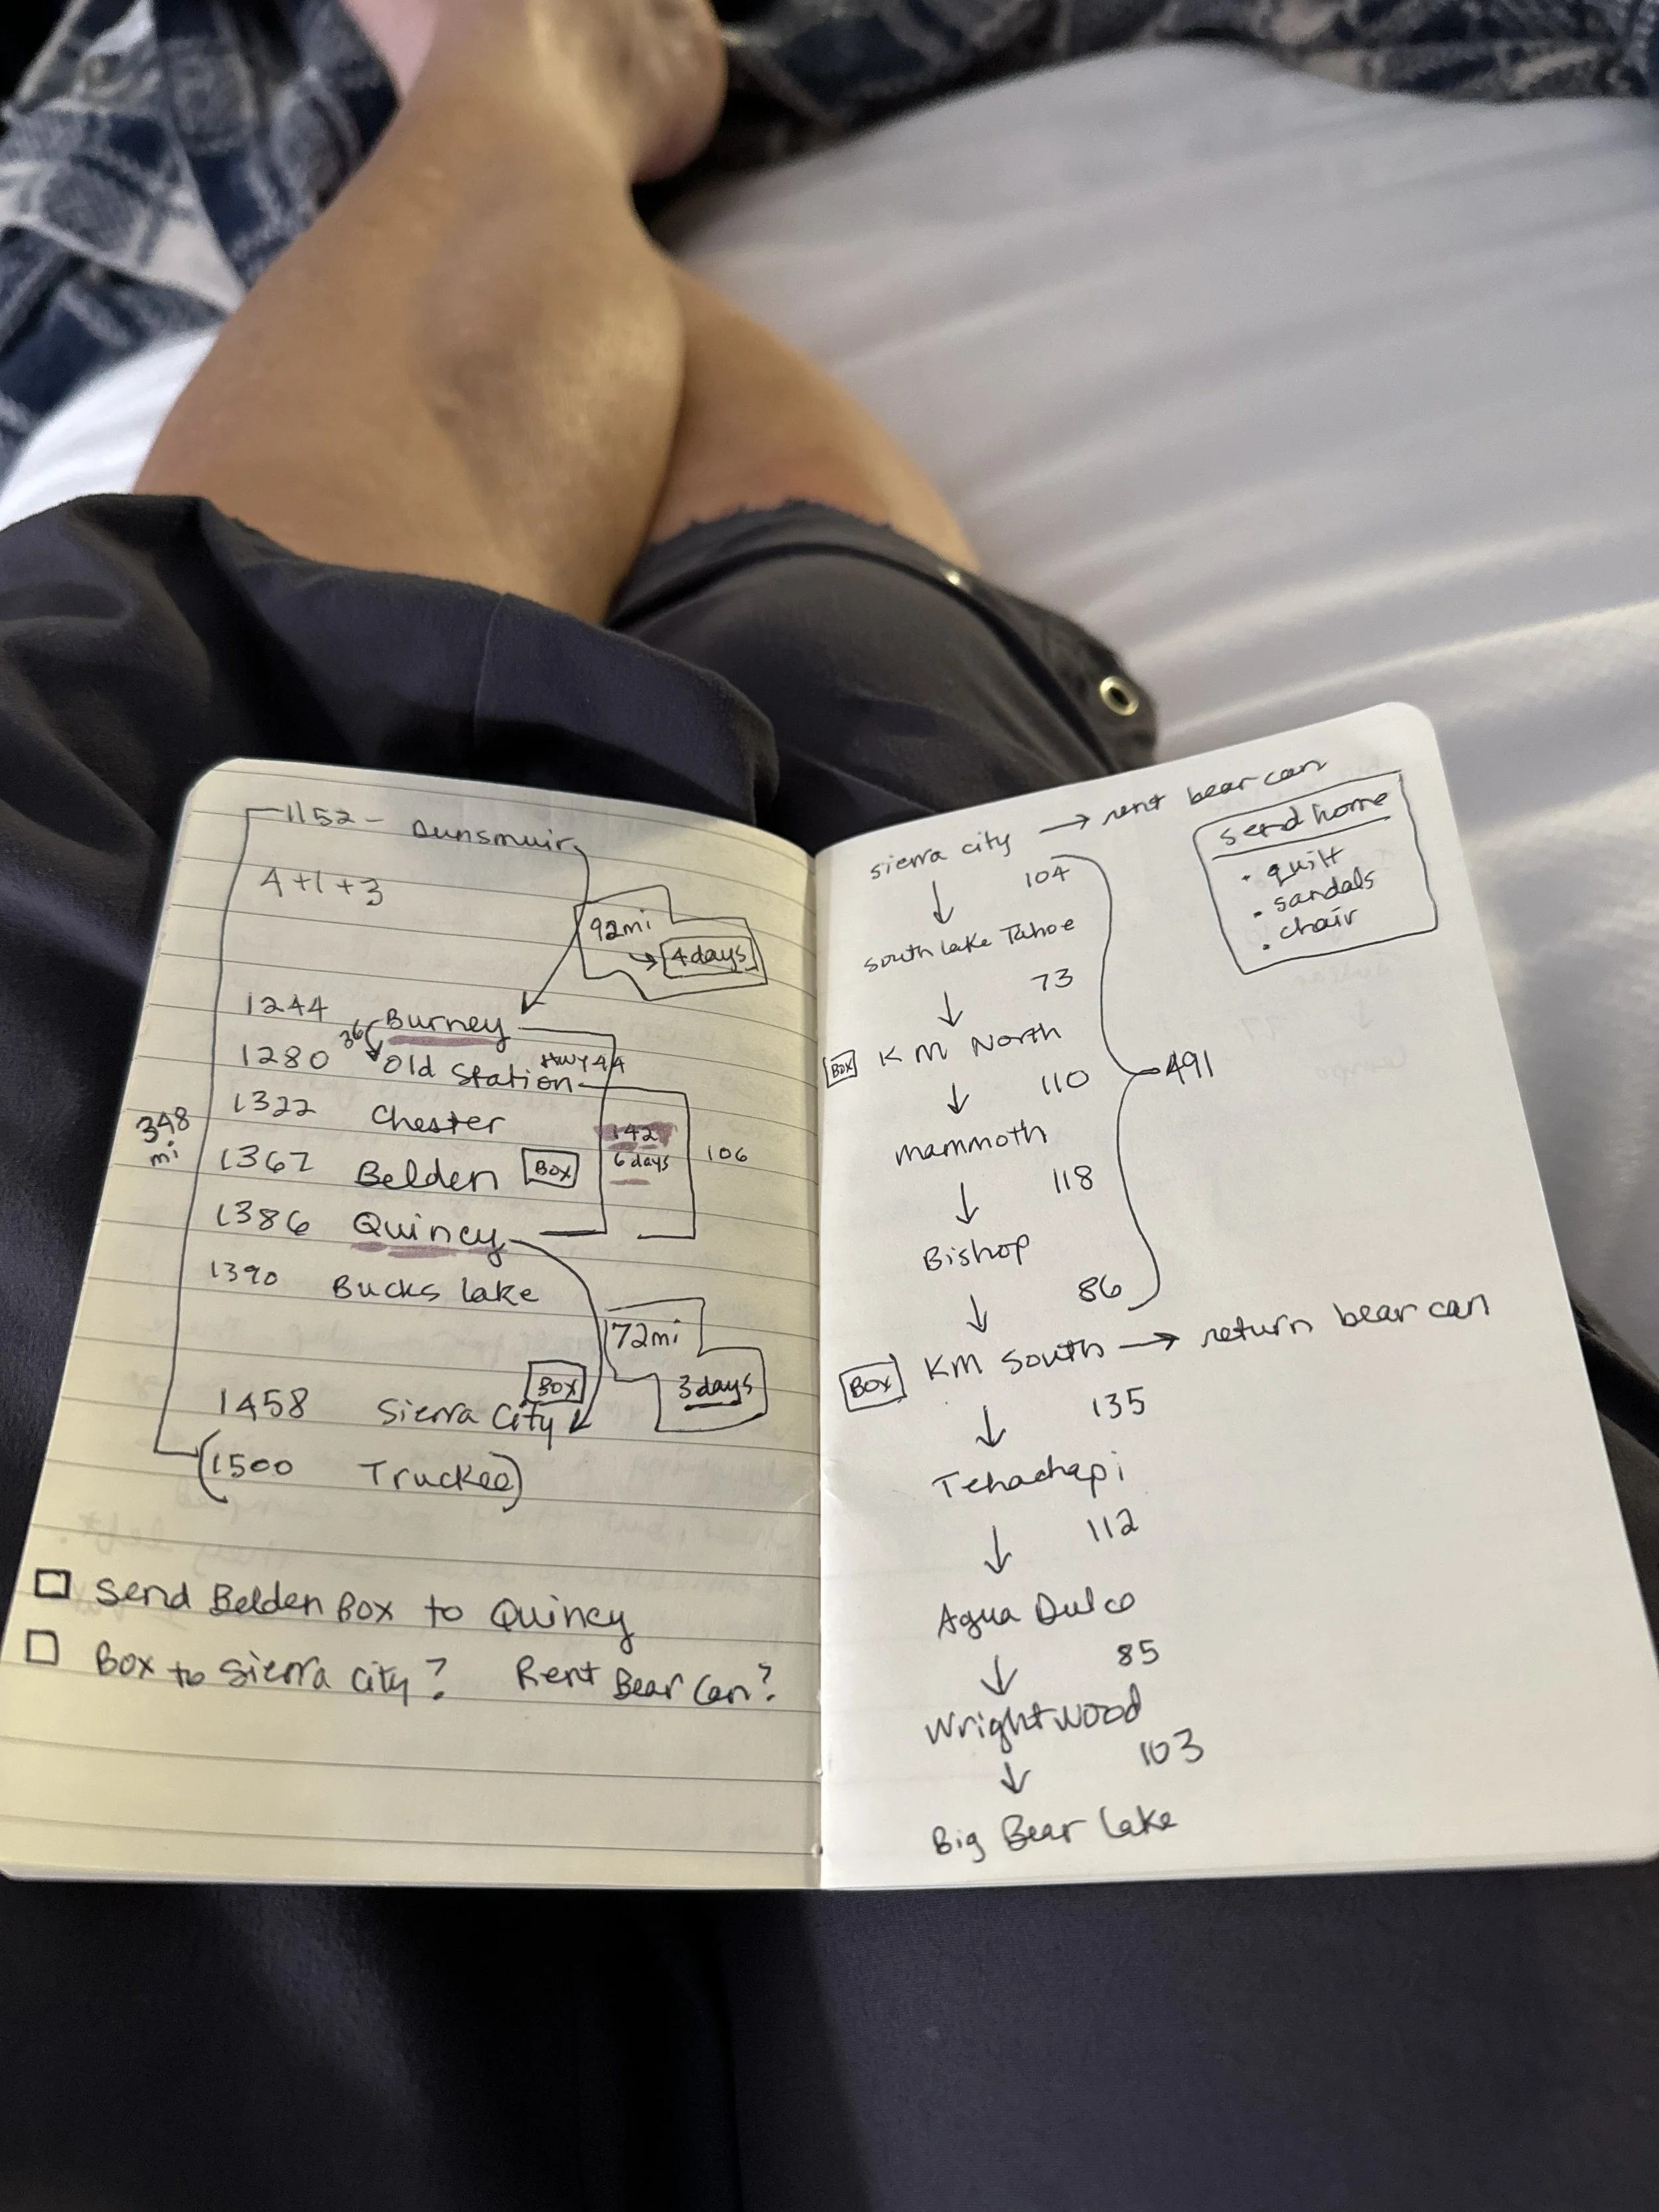 1152 - Dunsmuir
4+1+3
92mi
→ 4 days
1244 Burney
36
1280 Old Station HWY 44
1322 Chester
348 mi
142
6 days
106
1367 Belden Box
1386 Quincy
1390 Bucks Lake
72mi
3 days
Box
1458 Sierra City
(1500 Truckee)
☐ Send Belden Box to Quincy
☐ Box to Sierra City? Rent Bear Can?
Sierra City → rent bear can
send home
• quilt
• sandals
• chair
104
↓
South Lake Tahoe
73
↓
Box KM North
491
110
↓
Mammoth
118
↓
Bishop
86
↓
Box KM South → return bear can
135
↓
Tehachapi
112
↓
Agua Dulce
85
↓
Wrightwood
103
↓
Big Bear Lake